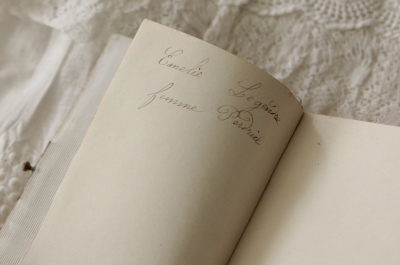 Emelie Leguin
femme Poirier